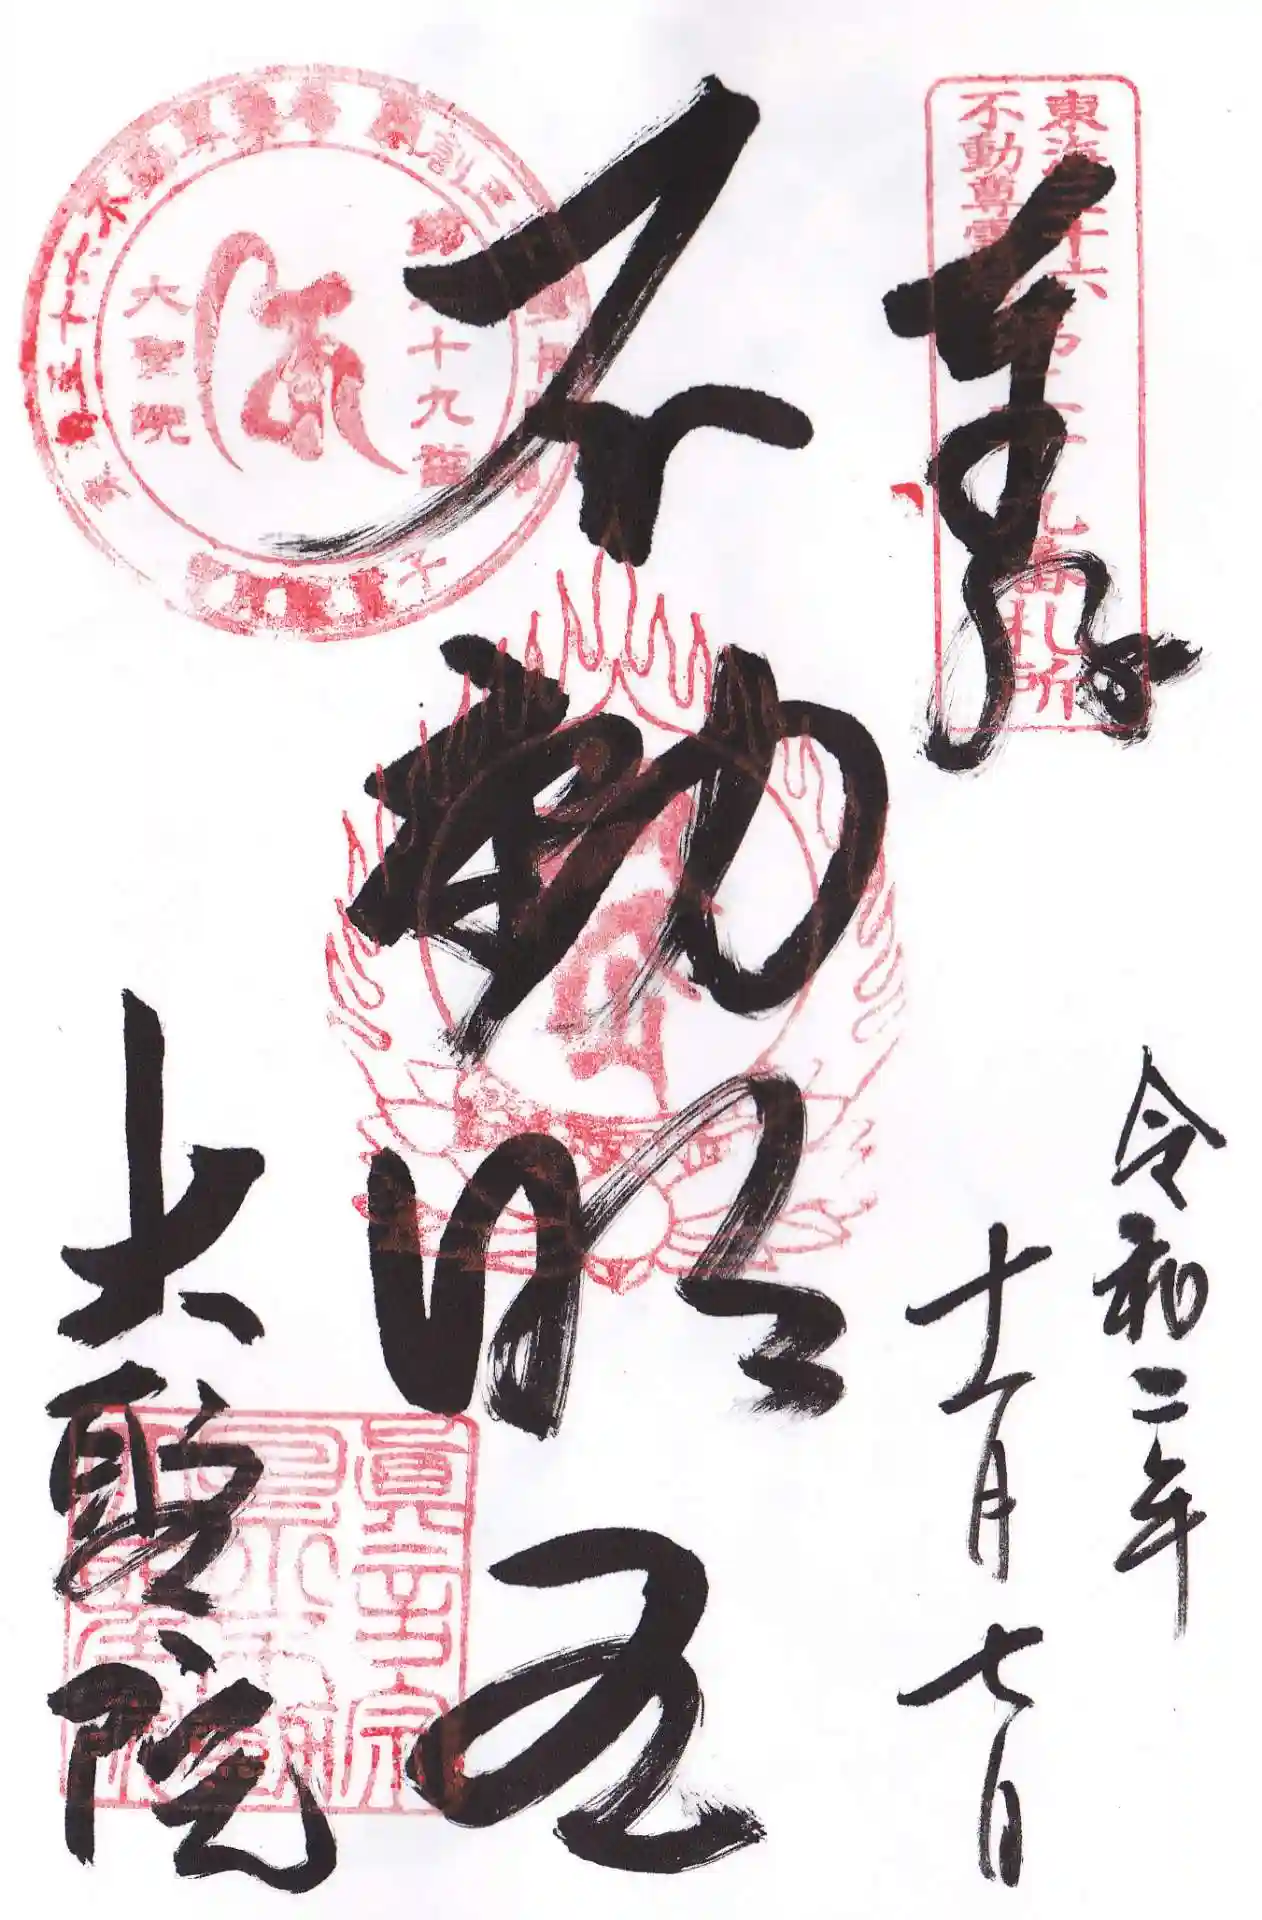 奉拝
東海三十六
不動尊霊場
第二十九番札所
令和二年
十一月七日
不動明王
第二十九番
大聖院
大聖院
真言宗